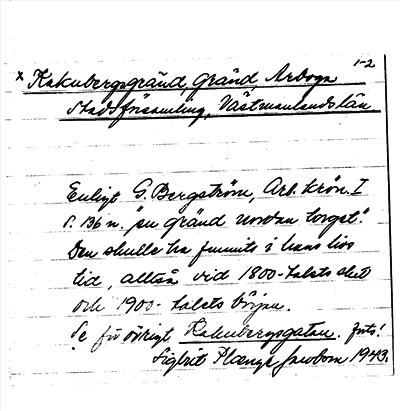 1-2
x Kakubergsgränd, Gränd, Arboga
Stadsförsamling, Västmanlands län
Enligt G. Bergström, Arb. krön. I
s. 136 n. "en gränd nordan torget."
Den skulle ha funnits i hans livs
tid, alltså vid 1800-talets slut
och 1900-talets början.
Se för övrigt Kakubergsgatan.
Sigbrit Plænge Jacobson 1943.